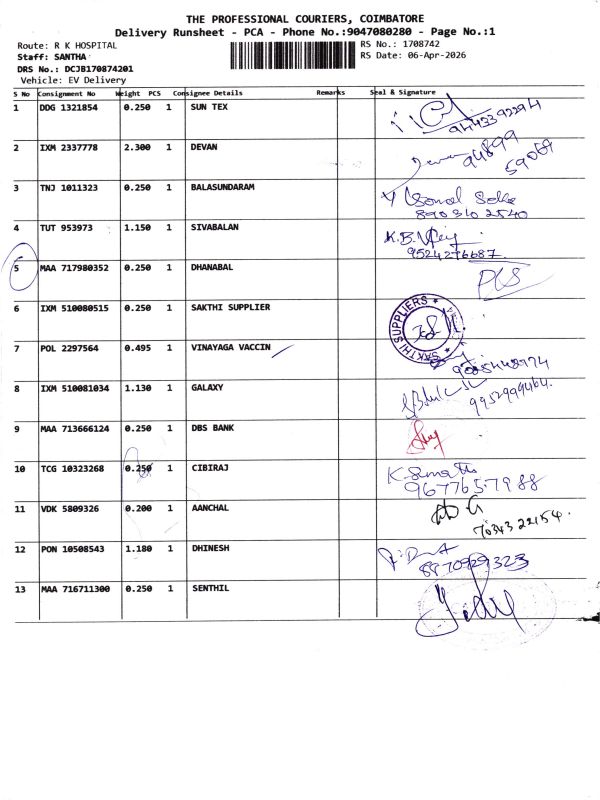 THE PROFESSIONAL COURIERS, COIMBATORE
Delivery Runsheet - PCA - Phone No.:9047080280 - Page No.:1
Route: R K HOSPITAL
RS No.: 1708742
Staff: SANTHA
RS Date: 06-Apr-2026
DRS No.: DCJB170874201
Vehicle: EV Delivery
S No Consignment No Weight PCS Consignee Details Remarks Seal & Signature
1 DDG 1321854 0.250 1 SUN TEX
9443392294
2 IXM 2337778 2.300 1 DEVAN
94899
59069
3 TNJ 1011323 0.250 1 BALASUNDARAM
8903102540
4 TUT 953973 1.150 1 SIVABALAN
K.B.
9524276687.
5 MAA 717980352 0.250 1 DHANABAL
6 IXM 510080515 0.250 1 SAKTHI SUPPLIER
SAKTHI SUPPLIERS
7 POL 2297564 0.495 1 VINAYAGA VACCIN
8 IXM 510081034 1.130 1 GALAXY
9952999464.
9 MAA 713666124 0.250 1 DBS BANK
10 TCG 10323268 0.250 1 CIBIRAJ
9677657988
11 VDK 5809326 0.200 1 AANCHAL
70343 22154.
12 PON 10508543 1.180 1 DHINESH
8970929323
13 MAA 716711300 0.250 1 SENTHIL